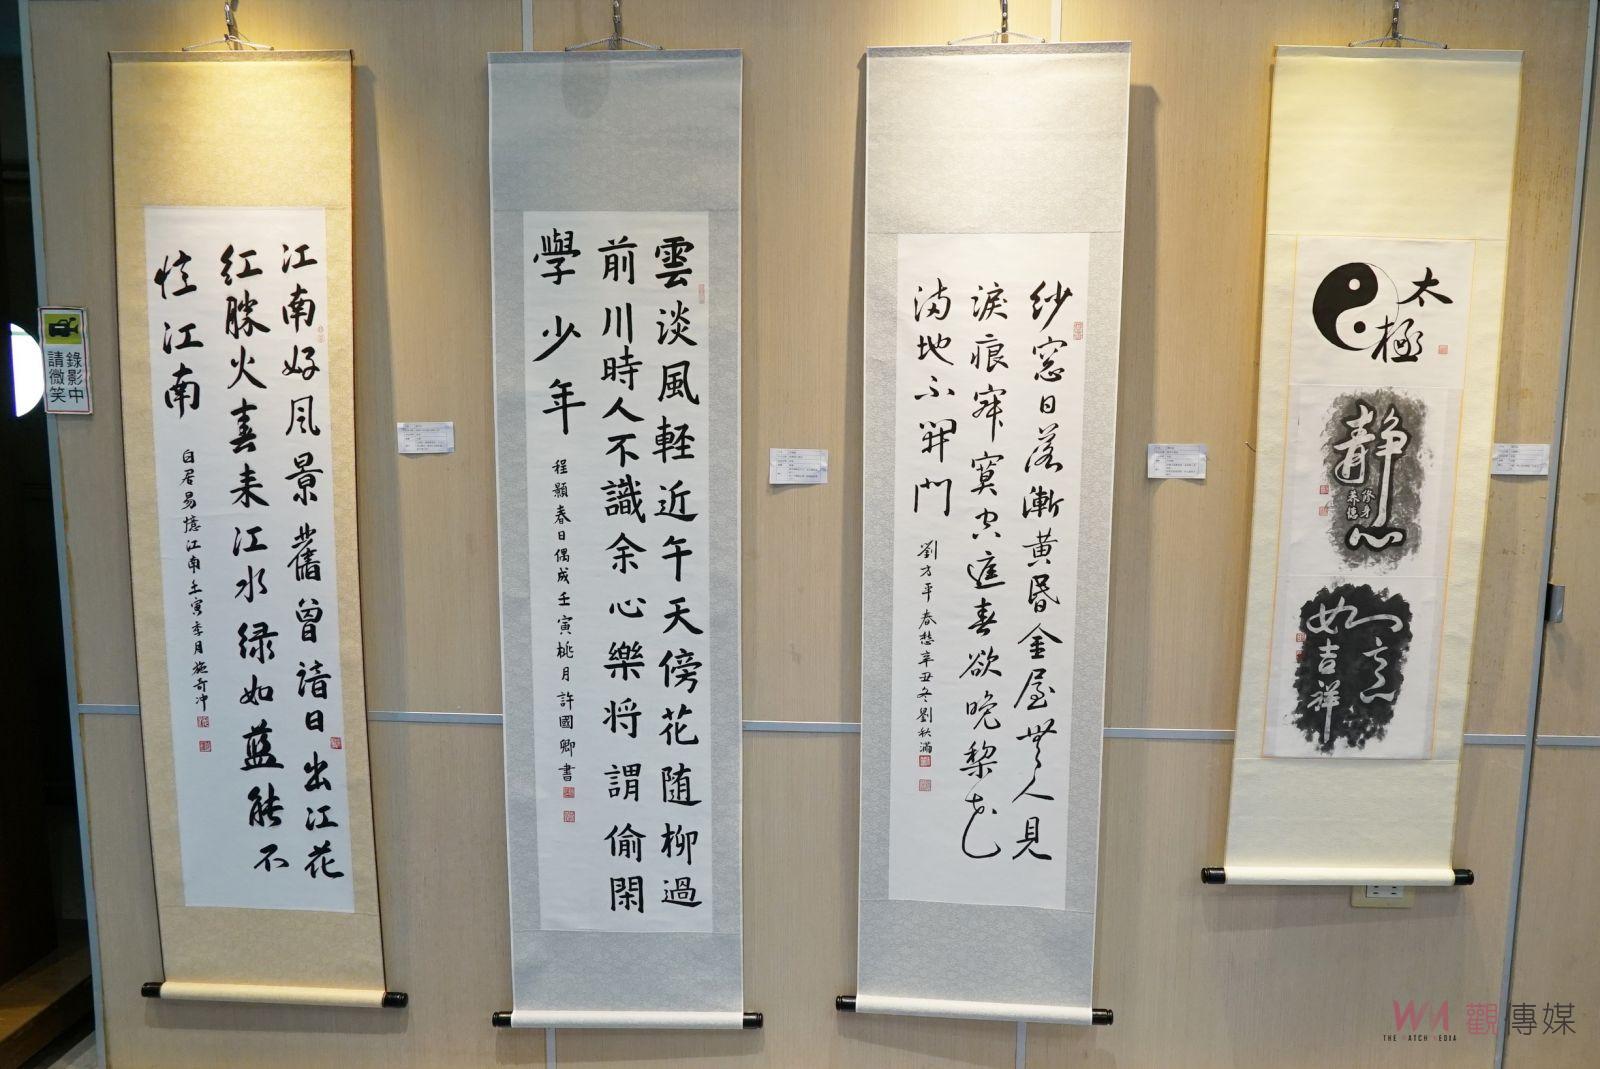 江南好風景舊曾諳日出江花
紅勝火春来江水绿如蓝能不
憶江南
白居易憶江南壬寅季月施奇冲
雲淡風輕近午天傍花随柳過
前川時人不識余心樂将謂偷閑
學少年
程顥春日偶成壬寅桃月許國卿書
紗窓日落漸黄昏金屋無人見
淚痕寂寞空庭春欲晚梨花
满地不開門
劉方平春愁辛丑冬劉秋滿
太
極
静心
修身
養德
一意
如吉祥
錄影中
請微笑
觀傳媒
THE WATCH MEDIA